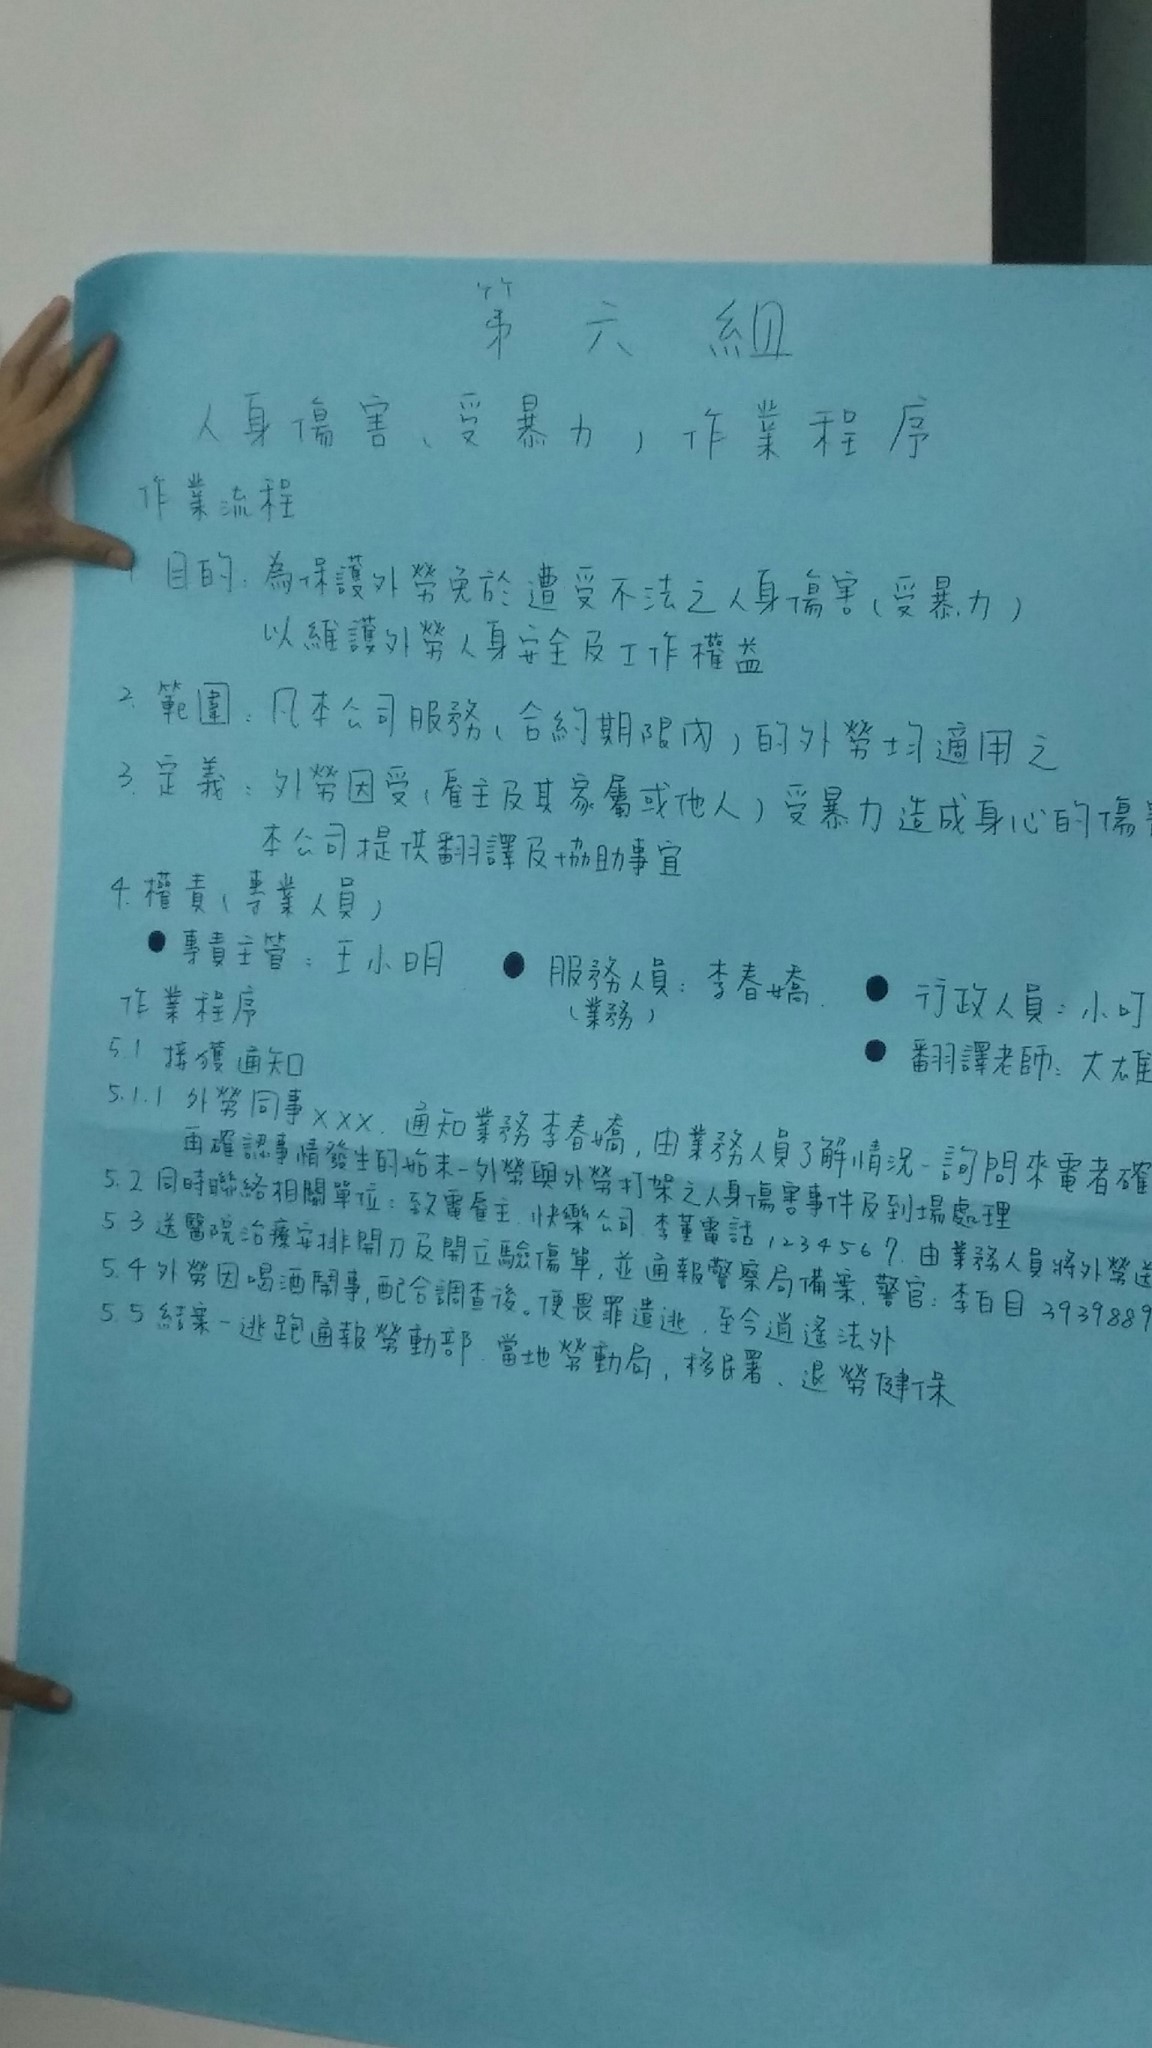 第六組
人身傷害(受暴力)作業程序
作業流程
1 目的:為保護外勞免於遭受不法之人身傷害(受暴力)
以維護外勞人身安全及工作權益
2. 範圍:凡本公司服務(合約期限內)的外勞均適用之
3. 定義:外勞因受(雇主及其家屬或他人)受暴力造成身心的傷害
本公司提供翻譯及協助事宜
4. 權責(專業人員)
● 專責主管:王小明 ● 服務人員:李春嬌. ● 行政人員:小叮
(業務)
● 翻譯老師:大雄
作業程序
5.1 接獲通知
5.1.1 外勞同事XXX. 通知業務李春嬌,由業務人員了解情況-詢問來電者確
再確認事情發生的始末-外勞與外勞打架之人身傷害事件及到場處理
5.2 同時聯絡相關單位:致電雇主.快樂公司.李董電話1234567.由業務人員將外勞送
5.3 送醫院治療安排開刀及開立驗傷單,並通報警察局備案.警官:李白目3939889
5.4 外勞因喝酒鬧事,配合調查後。便畏罪遣逃.至今逍遙法外
5.5 結案-逃跑通報勞動部.當地勞動局,移民署、退勞健保